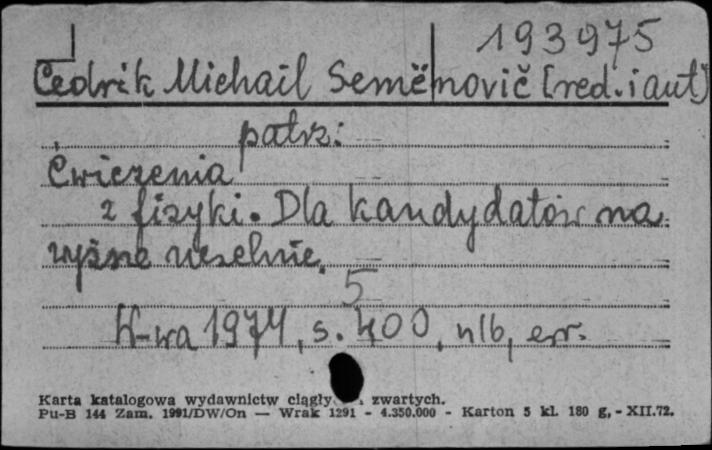 193975
Cedrik Michail Semënovič [red. i aut]
patrz:
Ćwiczenia
z fizyki. Dla kandydatów na
wyższe uczelnie.
5
W-wa 1974, s. 400, nlb, err.
Karta katalogowa wydawnictw ciągły zwartych.
Pu-B 144 Zam. 1991/DW/On — Wrak 1291 - 4.350.000 - Karton 5 kl. 180 g, - XII.72.